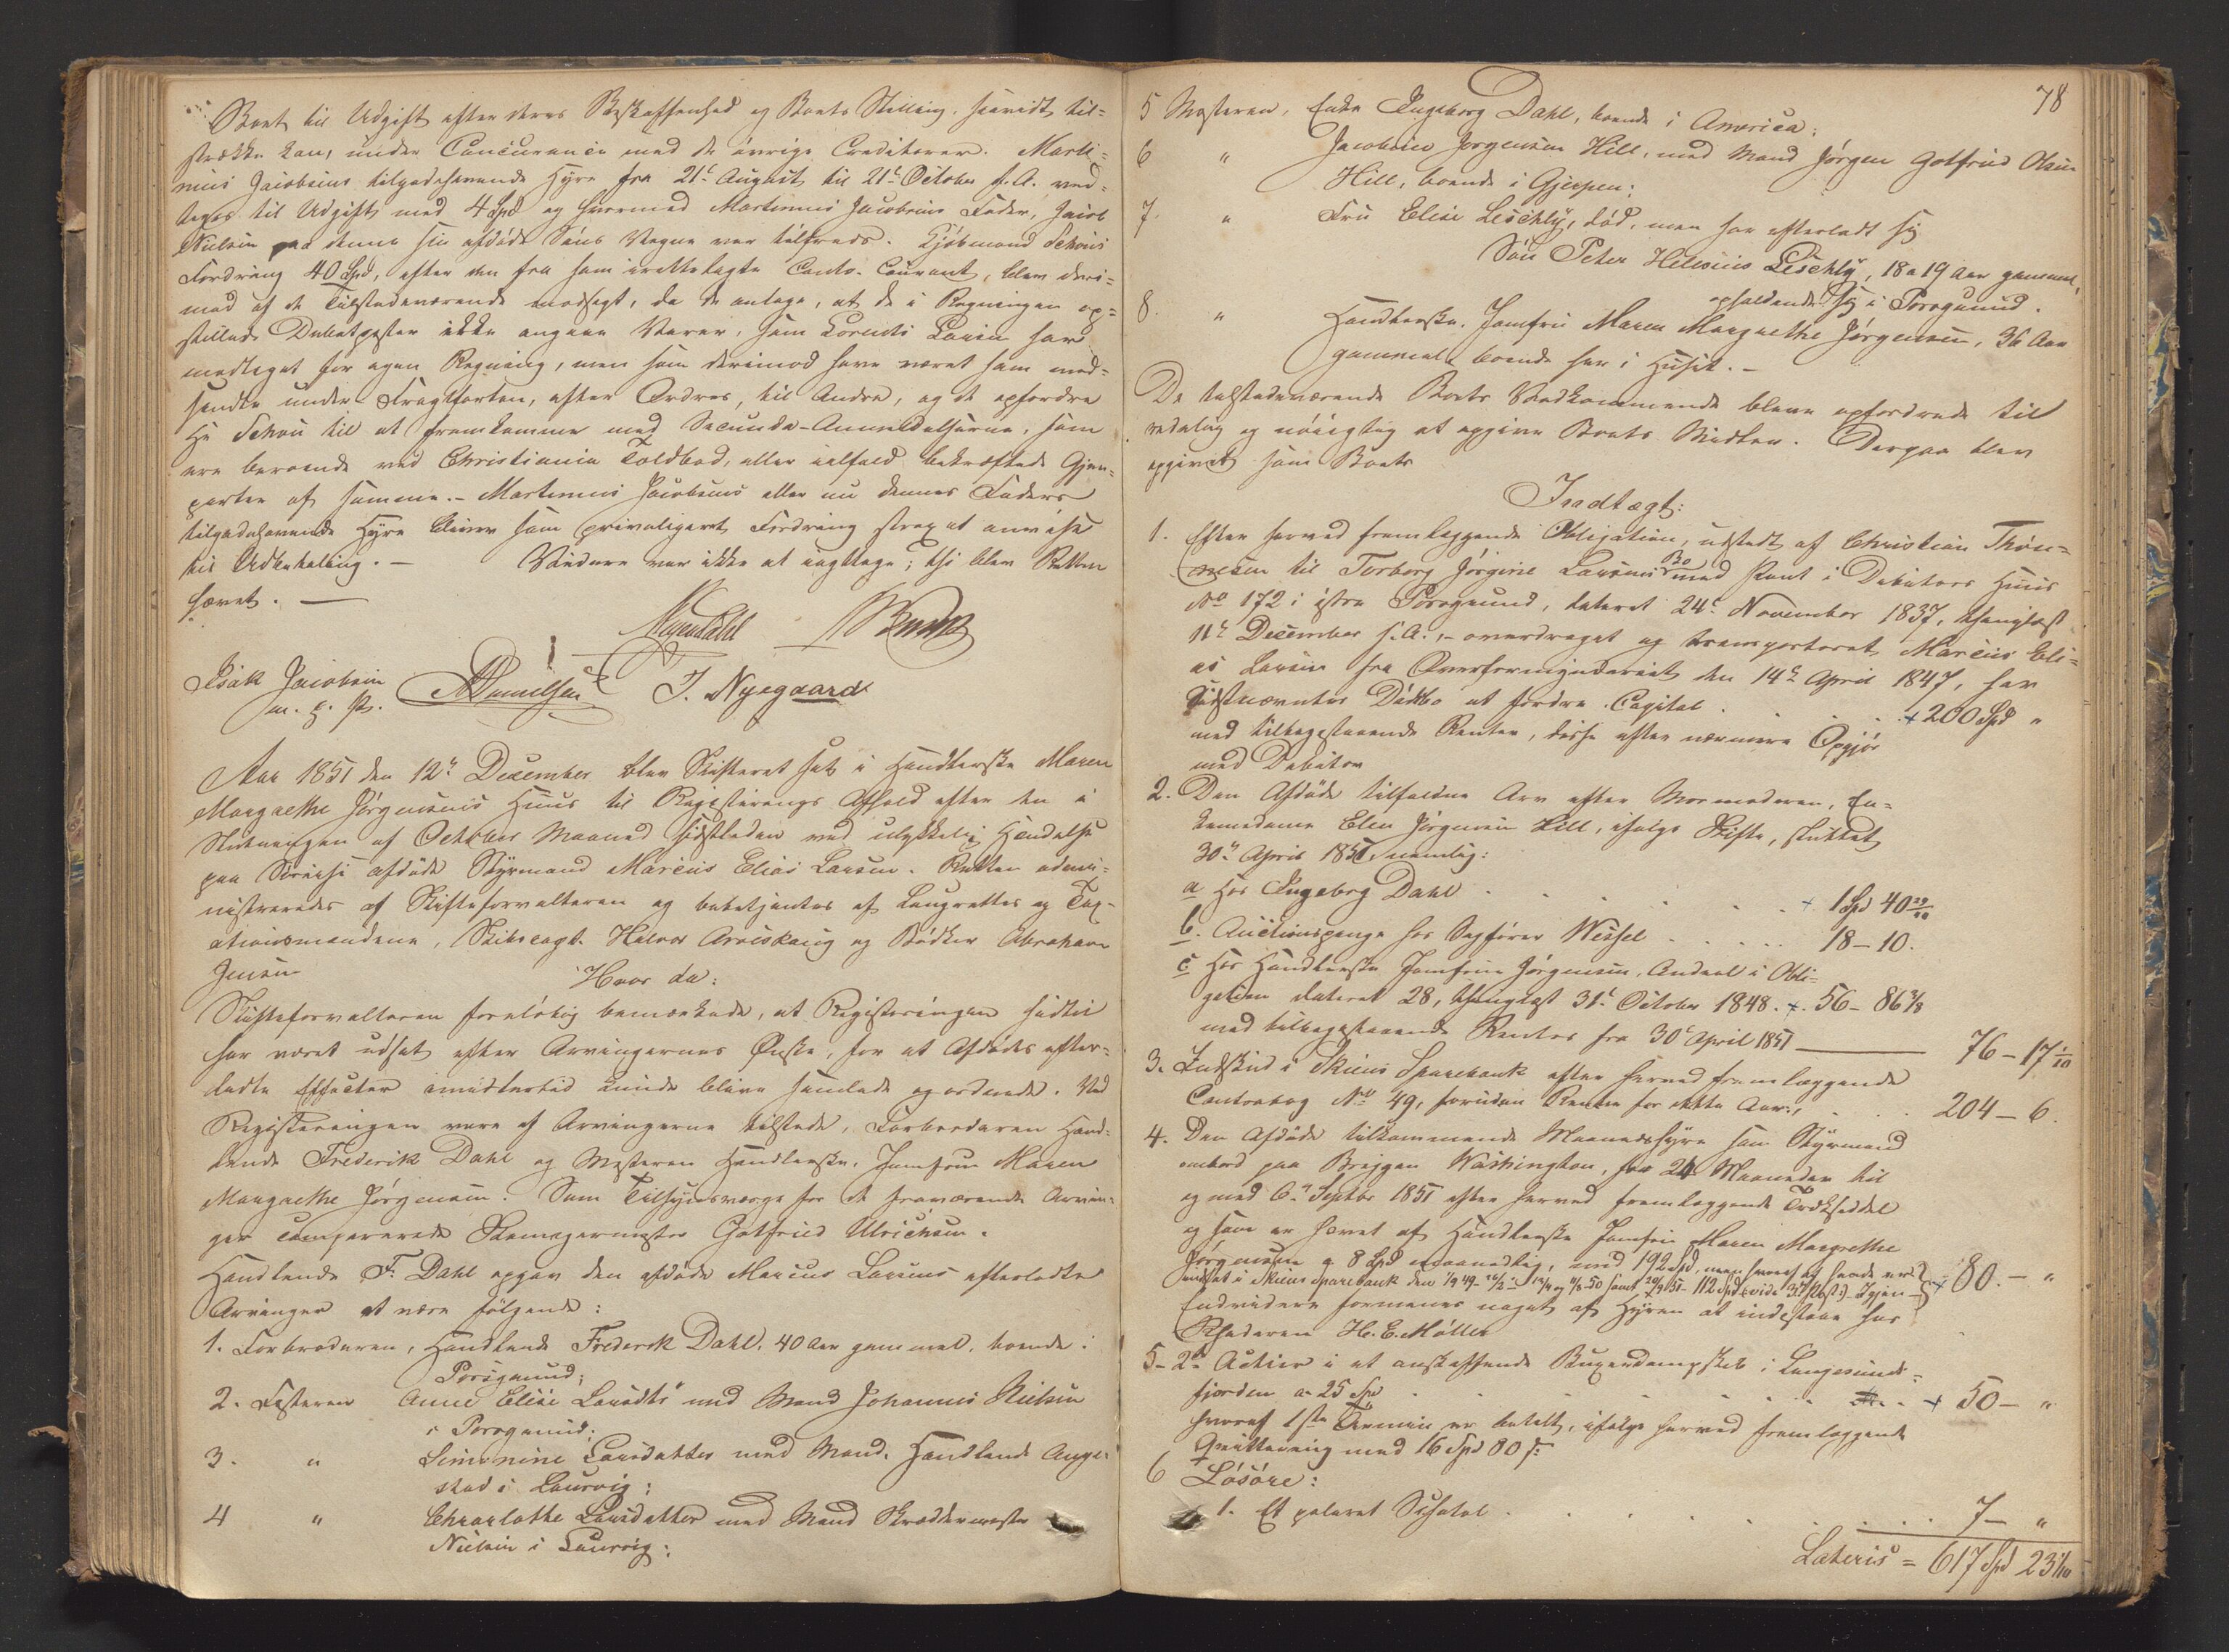 Boets til Udgift efter deres Beskaffenhed og Boets Stilling, saavidt til-
strække kan, under Concurance med de øvrige Creditorer. Marti-
nius Jacobsens tilgodehavende Hyre fra 21de August til 21de October f. A. ved-
toges til Udgift med 4 Spd og hvormed Martinius Jacobsens Fader, Jacob
Nielsen paa denne sin afdøde Søns Vegne var tilfreds. Kjøbmand Schous
Fordring 40 Spd, efter en fra ham irettelagte Conto-Courant, blev deri-
mod af de Tilstedeværende modsagt, da de antage, at de i Regningen op-
stillede Debetposter ikke angaae Varer, som Lorentz Larsen har
modtaget for egen Regning, men som derimod have været ham med-
sendte under Fragtfarten, efter Ordres, til Andre, og de opfordre
Hr Schou til at fremkomme med Secunda-Anmeldelserne, som
ere beroende ved Christiania Toldbod, eller ialfald bekræftede Gjen-
parter af samme. - Martinius Jacobsens eller nu dennes Faders
tilgodehavende Hyre bliver som priveligeret Fordring strax at anvise
til Udbetaling. - Videre var ikke at iagttage; thi blev Retten
hævet. -
Isak Jacobsen
m. f. P.
J. Nyegaard
Aar 1851 den 12te December blev Skifteret sat i Handlerske Maren
Margrethe Jørgensens Huus til Registerings Afhold efter den i
Slutningen af October Maaned sidstleden ved ulykkelig Hændelse
paa Søreise afdøde Styrmand Marcus Elias Larsen. Retten admi-
nistreredes af Skifteforvalteren og betjentes af Laugrettes og Tax-
ationsmændene, Skibscapt. Halvor Arveskaug og Bødker Abraham
Jensen
Hvor da:
Skifteforvalteren foreløbig bemærkede, at Registeringen hidtil
har været udsat efter Arvingernes Ønske, for at Afdødes efter-
ladte Effecter imidlertid kunde blive samlede og ordnede. Ved
Registeringen vare af Arvingerne tilstede, Farbroderen Hand-
lende Frederik Dahl og Mosteren Handlerske, Jomfrue Maren
Margrethe Jørgensen. Som Tilsynsværge for de fraværende Arvin-
ger comparerede Skomagermester Gotfried Ulrichsen.
Handlende F. Dahl opgav den afdøde Marcus Larsens efterladte
Arvinger at være følgende:
1. Farbroderen, Handlende Frederik Dahl, 40 Aar gammel, boende i
Porsgrund;
2. Fasteren Anne Elise Larsdtr med Mand Johannes Nielsen
i Porsgrund;
3. " Simonine Larsdatter med Mand, Handlende Auge-
stad i Laurvig;
4 " Charlothe Larsdatter med Mand Skrædermester
Nielsen i Laurvig;
78
5 Mosteren, Enke Ingeborg Dahl, boende i America;
6 " Jacobine Jørgensen Hill, med Mand Jørgen Gotfried Olsen
Hill, boende i Gjerpen;
7. " Fru Elise Leschly, død, men har efterladt sig
Søn Peter Helenius Leschly, 18 a 19 Aar gammel,
opholdende sig i Porsgrund.
8. " Handlerske, Jomfru Maren Margrethe Jørgensen, 36 Aar
gammel, boende her i Huset. -
De tilstedeværende Boets Vedkommende bleve opfordrede til
redelig og nøiagtig at opgive Boets Midler. Derpaa blev
opgivet som Boets
Indtægt:
1. Efter herved fremlæggende Obligation, udstedt af Christian Thøn-
nesen til Torborg Jørgine Larsens Bo med Pant i Debitors Huus
No 172 i østre Porsgrund, dateret 24de November 1837, thinglæst
11te December s. A., - overdraget og transporteret Marcus Eli-
as Larsen fra Overformynderiet den 14de April 1847, har
Sidstnævntes Dødsbo at fordre. Capital . . . + 200 Spd "
med tilbagestaaende Renter, disse efter nærmere Opgjør
med Debitor
2. Den Afdøde tilfaldne Arv efter Mormoderen, En-
kemadame Elen Jørgensen Hill, ifølge Skifte, sluttet
30te April 1851, nemlig:
a Hos Ingeborg Dahl . . . + 1 Spd 40 29/40
b. Auctionspenge hos Sagfører Wessel . . . 18 - 10.
c Hos Handlerske Jomfrue Jørgensen, Andeel i Obli-
gation dateret 28, thinglæst 31de October 1848. + . 56 - 86 3/8
med tilbagestaaende Renter fra 30te April 1851 — 76 - 17 1/10
3. Indskud i Skiens Sparebank efter herved fremlæggende
Contrabog No 49, foruden Renter for dette Aar, . . . 204 - 6.
4. Den Afdøde tilkommende Maanedshyre som Styrmand
ombord paa Briggen Washington, fra 24 Maaneder til
og med 6te Septbr 1851 efter herved fremlæggende Trækseddel
og som er hævet af Handlerske Jomfru Maren Margrethe
Jørgensen a 8 Spd maanedlig, med 192 Spd, men hvoraf
indsat i Skiens Sparebank den 1/9 49 - 112 Spd (vide 3die Post) Igjen + 80. - "
Endvidere formenes noget af Hyren at indestaae hos
Rhederen H. E. Møller
5 - 2de Actier i et anskaffende Bugserdampskib i Langesunds-
fjorden a 25 Spd . . . + 50 - "
hvoraf 1ste Termin er betalt, ifølge herved fremlæggende
Qvittering med 16 Spd 80 s.
6 Løsøre:
1. Et poleret Schatol . . . 7 - "
Lateris = 617 Spd 23 1/10